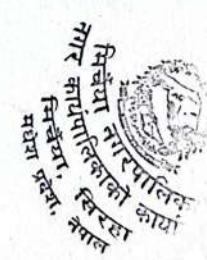 मिर्चैया नगरपालिका
नगर कार्यपालिकाको कार्या
मिर्चैया, सिरहा
मधेश प्रदेश, नेपाल